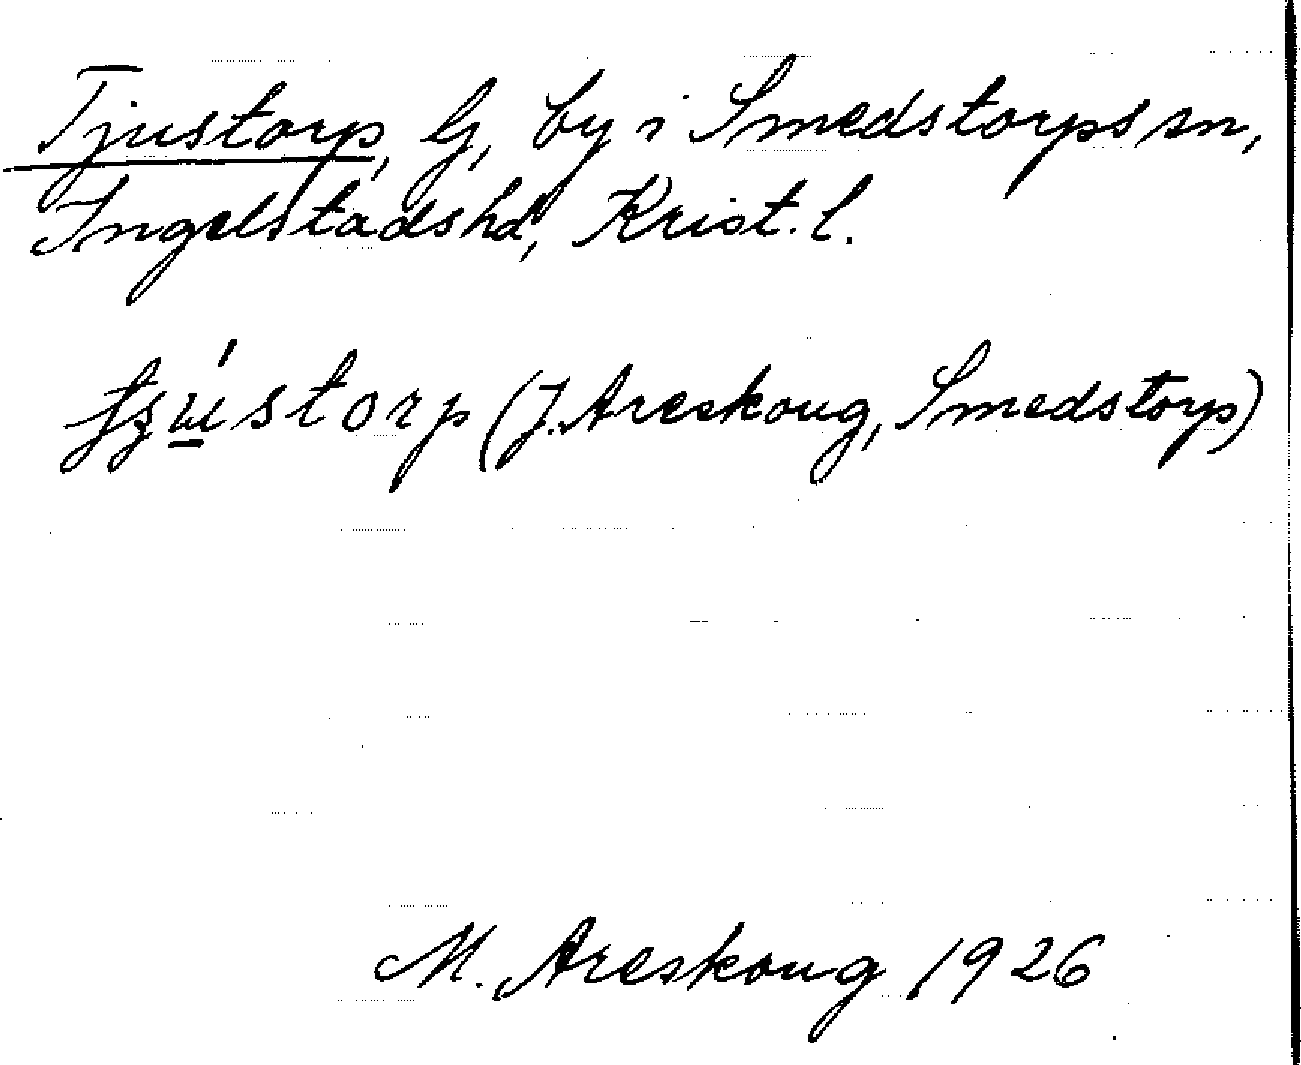 Tjustorp, G, by i Smedstorps sn,
Ingelstads hd, Krist. l.
(J. Areskoug, Smedstorp)
M. Areskoug 1926